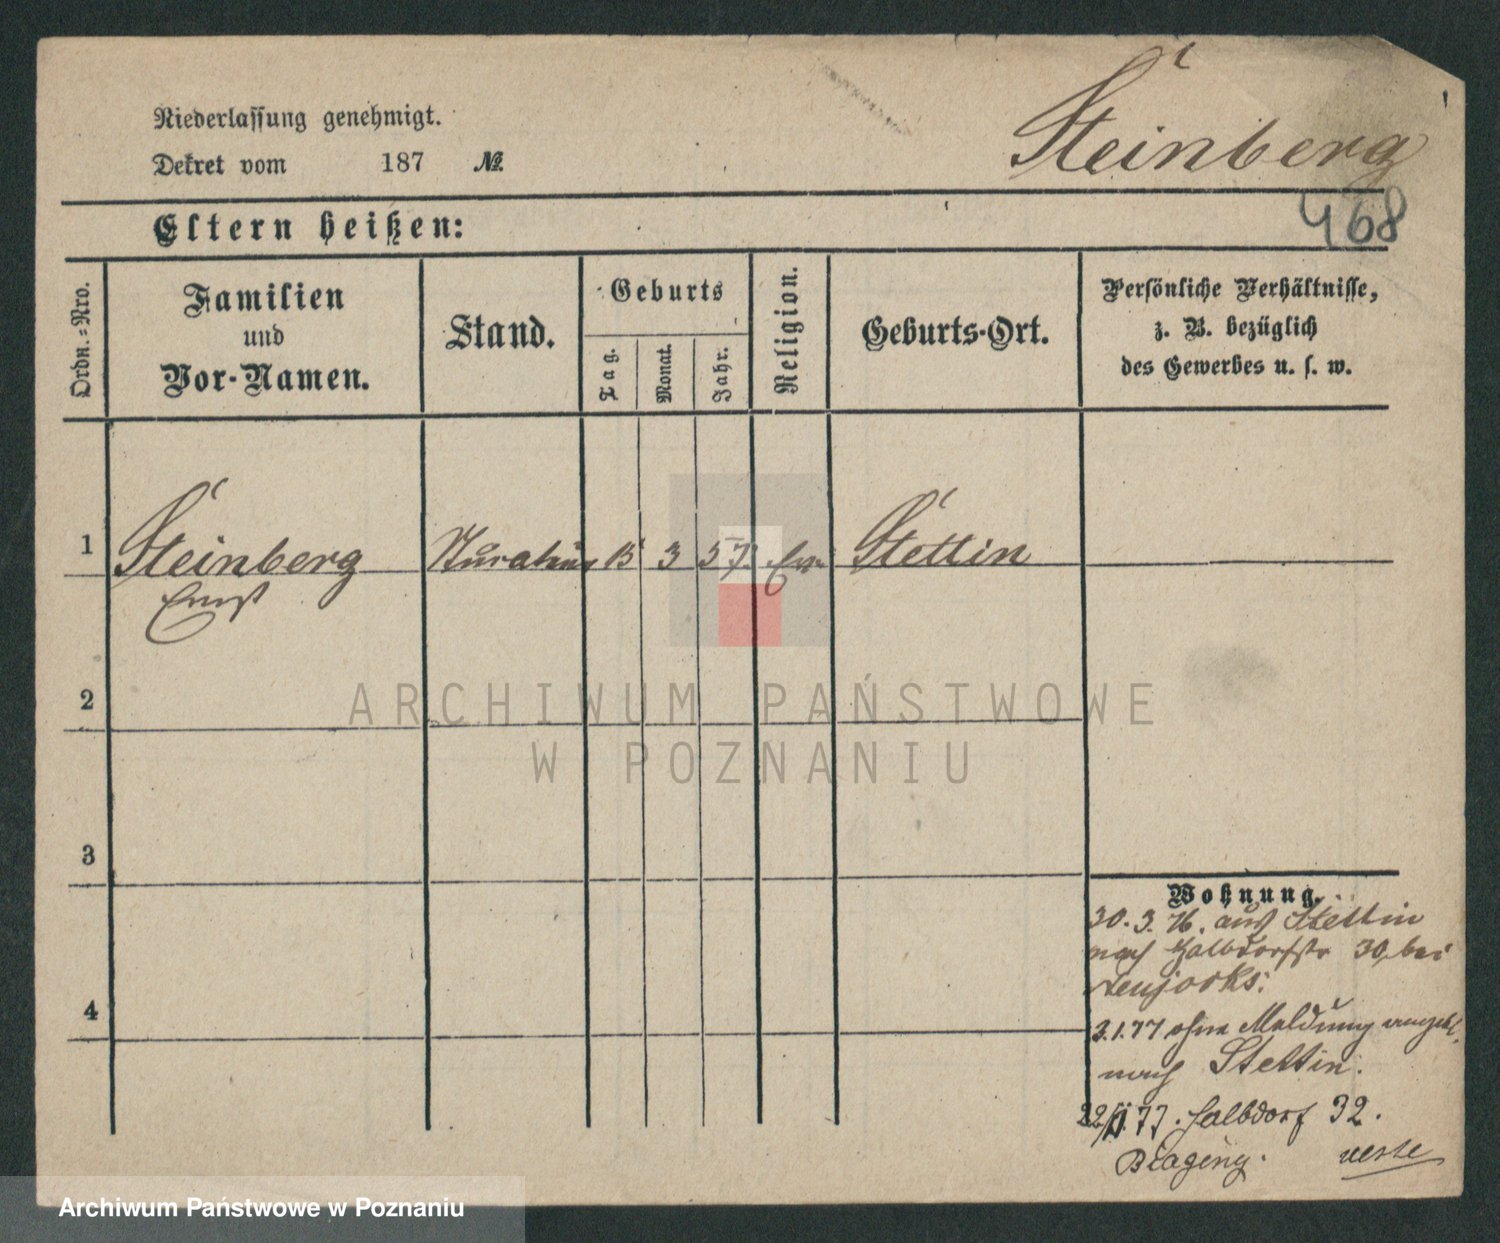 Niederlassung genehmigt.
Steinberg
Dekret vom 187 №
468
Eltern heißen:
Ordn.-Nro.
Familien
und
Vor-Namen.
Stand.
Geburts
Tag.
Monat.
Jahr.
Religion.
Geburts-Ort.
Persönliche Verhältnisse,
z. B. bezüglich
des Gewerbes u. s. w.
1 Steinberg 15 3 57. Stettin
Ernst
2
3
Wohnung.
30. 3. 76. aus Stettin
nach Halbdorfstr 30, bei
4
3.1.77 ohne Meldung
nach Stettin.
77. Halbdorf 32.
ARCHIWUM PAŃSTWOWE
W POZNANIU
Archiwum Państwowe w Poznaniu